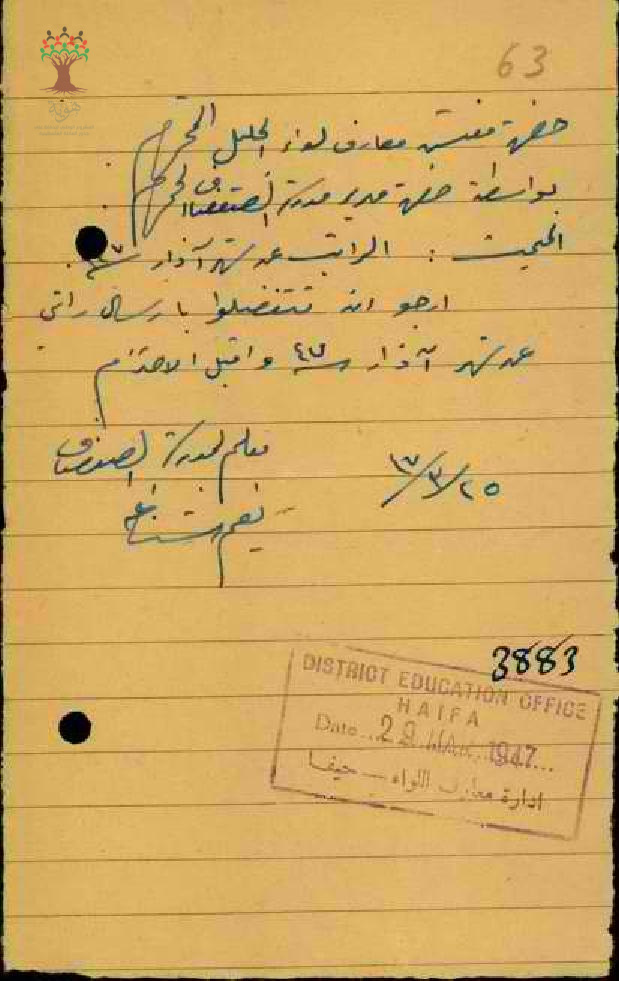 63
حضرة مفتش معارف لواء الجليل المحترم
بواسطة حضرة مدير مدرسة الصفصاف المحترم
المبحث : الراتب عن شهر آذار سنة ٤٧
ارجو ان تتفضلوا بارسال راتبي
عن شهر آذار سنة ٤٧ واقبلوا الاحترام
معلم مدرسة الصفصاف
٢٥/٣/٤٧
نعيم
3883
DISTRICT EDUCATION OFFICE
HAIFA
Date 29 MAR 1947
ادارة معارف اللواء — حيفا
هوية